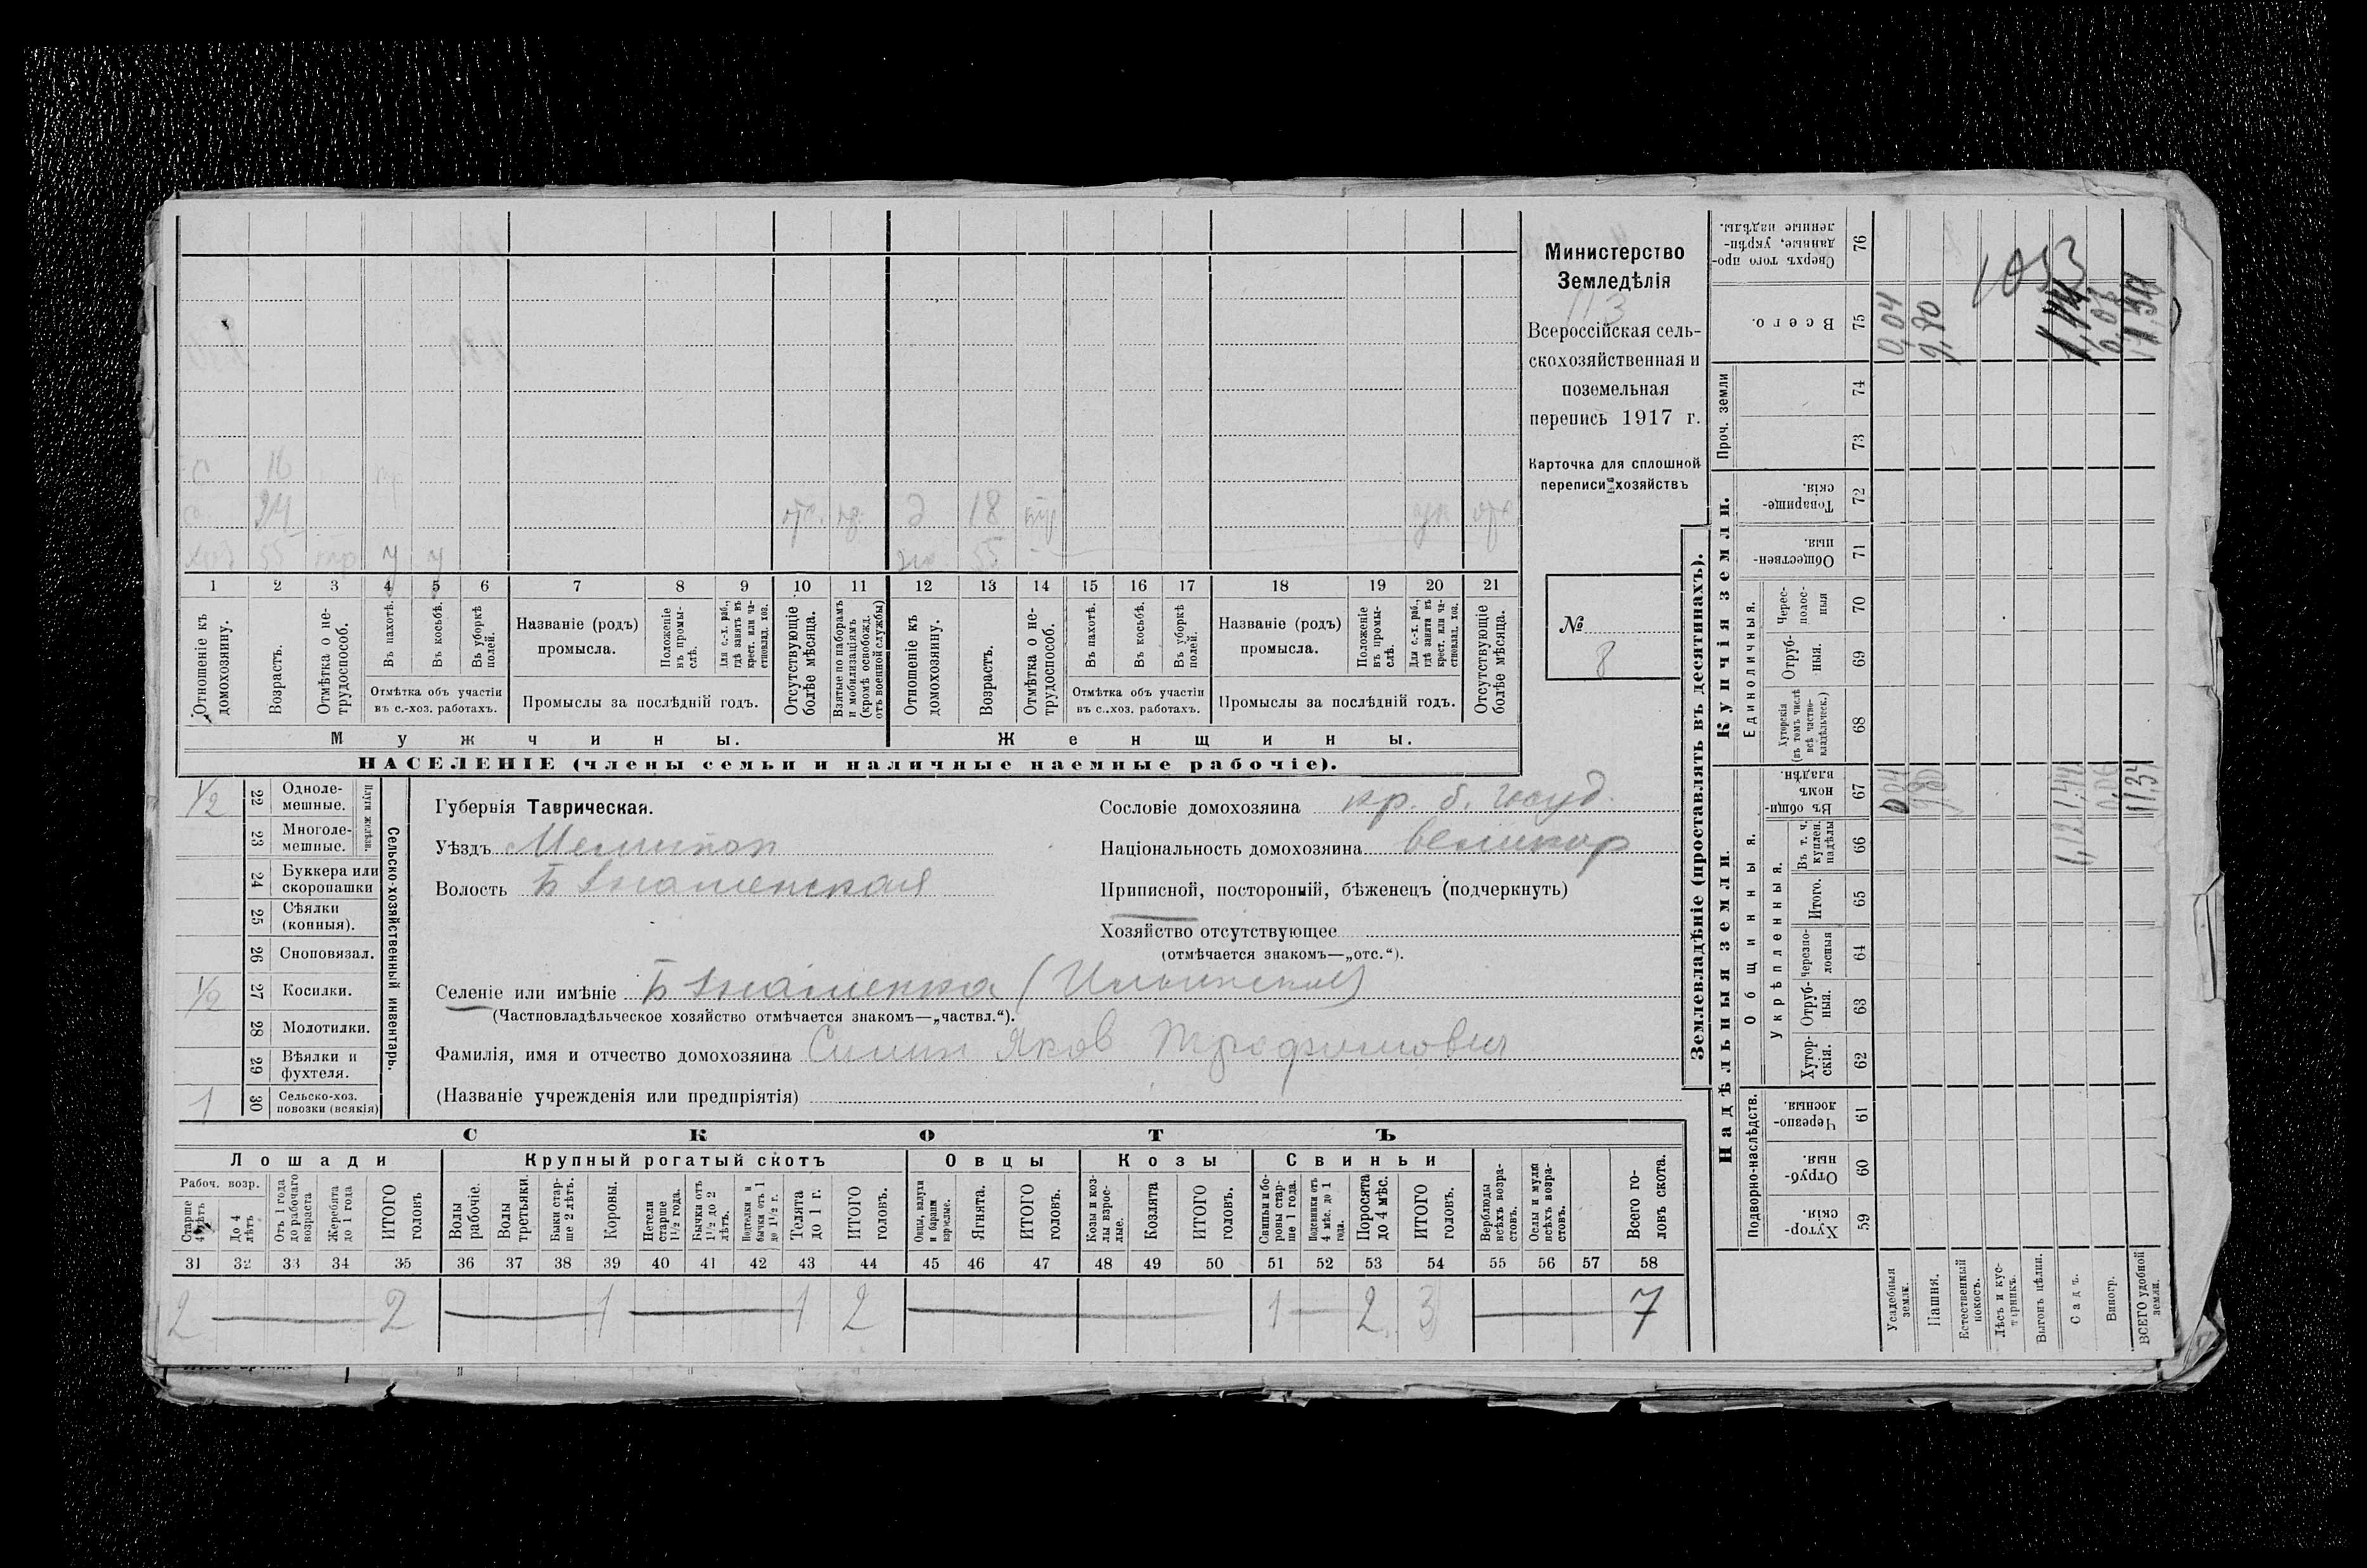 Министерство
Земледѣлія
Всероссійская сель-
скохозяйственная и
поземельная
перепись 1917 г.
Карточка для сплошной
переписи хозяйствъ
№
8
с 16
с. 24 отс. д 18 отс
хоз 55 ж 55
1 2 3 4 5 6 7 8 9 10 11 12 13 14 15 16 17 18 19 20 21
Отношеніе къ домохозяину.
Возрастъ.
Отмѣтка о не-трудоспособ.
Въ пахотѣ.
Въ косьбѣ.
Въ уборкѣ полей.
Отмѣтка объ участіи
въ с.-хоз. работахъ.
Названіе (родъ)
промысла.
Положеніе въ промы-слѣ.
Для с.-х. раб., гдѣ занятъ въ крест. или ча-стновлад. хоз.
Промыслы за послѣдній годъ.
Отсутствующіе болѣе мѣсяца.
Взятые по наборамъ и мобилизаціямъ (кромѣ освобожд. отъ военной службы)
Отношеніе къ домохозяину.
Возрастъ.
Отмѣтка о не-трудоспособ.
Въ пахотѣ.
Въ косьбѣ.
Въ уборкѣ полей.
Отмѣтка объ участіи
въ с.-хоз. работахъ.
Названіе (родъ)
промысла.
Положеніе въ промы-слѣ.
Для с.-х. раб., гдѣ занята въ крест. или ча-стновлад. хоз.
Промыслы за послѣдній годъ.
Отсутствующіе болѣе мѣсяца.
Мужчины. Женщины.
НАСЕЛЕНІЕ (члены семьи и наличные наемные рабочіе).
1/2 22 Одноле-мешные.
23 Многоле-мешные.
Плуги желѣзн.
24 Буккера или скоропашки
25 Сѣялки (конныя).
26 Сноповязал.
1/2 27 Косилки.
28 Молотилки.
29 Вѣялки и фухтеля.
1 30 Сельско-хоз. повозки (всякія)
Сельско-хозяйственный инвентарь.
Губернія Таврическая.
Уѣздъ Мелитоп
Волость Б Знаменская
Сословіе домохозяина кр. б. госуд.
Національность домохозяина великор
Приписной, посторонній, бѣженецъ (подчеркнуть)
Хозяйство отсутствующее
(отмѣчается знакомъ—„отс.“).
Селеніе или имѣніе Б Знаменка (Ильинское)
(Частновладѣльческое хозяйство отмѣчается знакомъ—„частвл.“).
Фамилія, имя и отчество домохозяина Силин Яков Трофимович
(Названіе учрежденія или предпріятія)
СКОТЪ
Лошади Крупный рогатый скотъ Овцы Козы Свиньи
Рабоч. возр.
Старше 4 лѣтъ
До 4 лѣтъ
Отъ 1 года до рабочаго возраста
Жеребята до 1 года
ИТОГО головъ
Волы рабочіе.
Волы третьяки.
Быки стар-ше 2 лѣтъ.
Коровы.
Нетели старше 1½ года.
Бычки отъ 1½ до 2 лѣтъ.
Подтелки и бычки отъ 1 до 1½ г.
Телята до 1 г.
ИТОГО головъ.
Овцы, валухи и бараны взрослые.
Ягнята.
ИТОГО головъ.
Козы и коз-лы взрос-лые.
Козлята
ИТОГО головъ.
Свиньи и бо-ровы стар-ше 1 года.
Подсвинки отъ 4 мѣс. до 1 года.
Поросята до 4 мѣс.
ИТОГО головъ.
Верблюды всѣхъ возра-стовъ.
Ослы и мулы всѣхъ возра-стовъ.
Всего го-ловъ скота.
31 32 33 34 35 36 37 38 39 40 41 42 43 44 45 46 47 48 49 50 51 52 53 54 55 56 57 58
2 2 1 1 2 1 2 3 7
Землевладѣніе (проставлять въ десятинахъ).
Надѣльныя земли. Купчія земли.
Подворно-наслѣдств.
Общинныя.
Укрѣпленныя.
Единоличныя.
Проч. земли
Хутор-скія. 59
Отруб-ныя. 60
Черезпо-лосныя. 61
Хутор-скія. 62
Отруб-ныя. 63
Черезпо-лосныя 64
Итого. 65
Въ т. ч. куплен. надѣлы 66
Въ общи-номъ владѣн. 67
Хуторскія (въ томъ числѣ всѣ частно-владѣльческ.) 68
Отруб-ныя. 69
Черес-полос-ныя 70
Обществен-ныя. 71
Товарище-скія. 72
73
74
Всего. 75
Сверхъ того про-данные, укрѣп-ленные надѣлы. 76
Усадебныя земли.
Пашня.
Естественный покосъ.
Лѣсъ и кус-тарникъ.
Выгонъ цѣлин.
Садъ.
Виногр.
ВСЕГО удобной земли.
0,04
9,80
1,44
11,34
0,04
9,90
1053